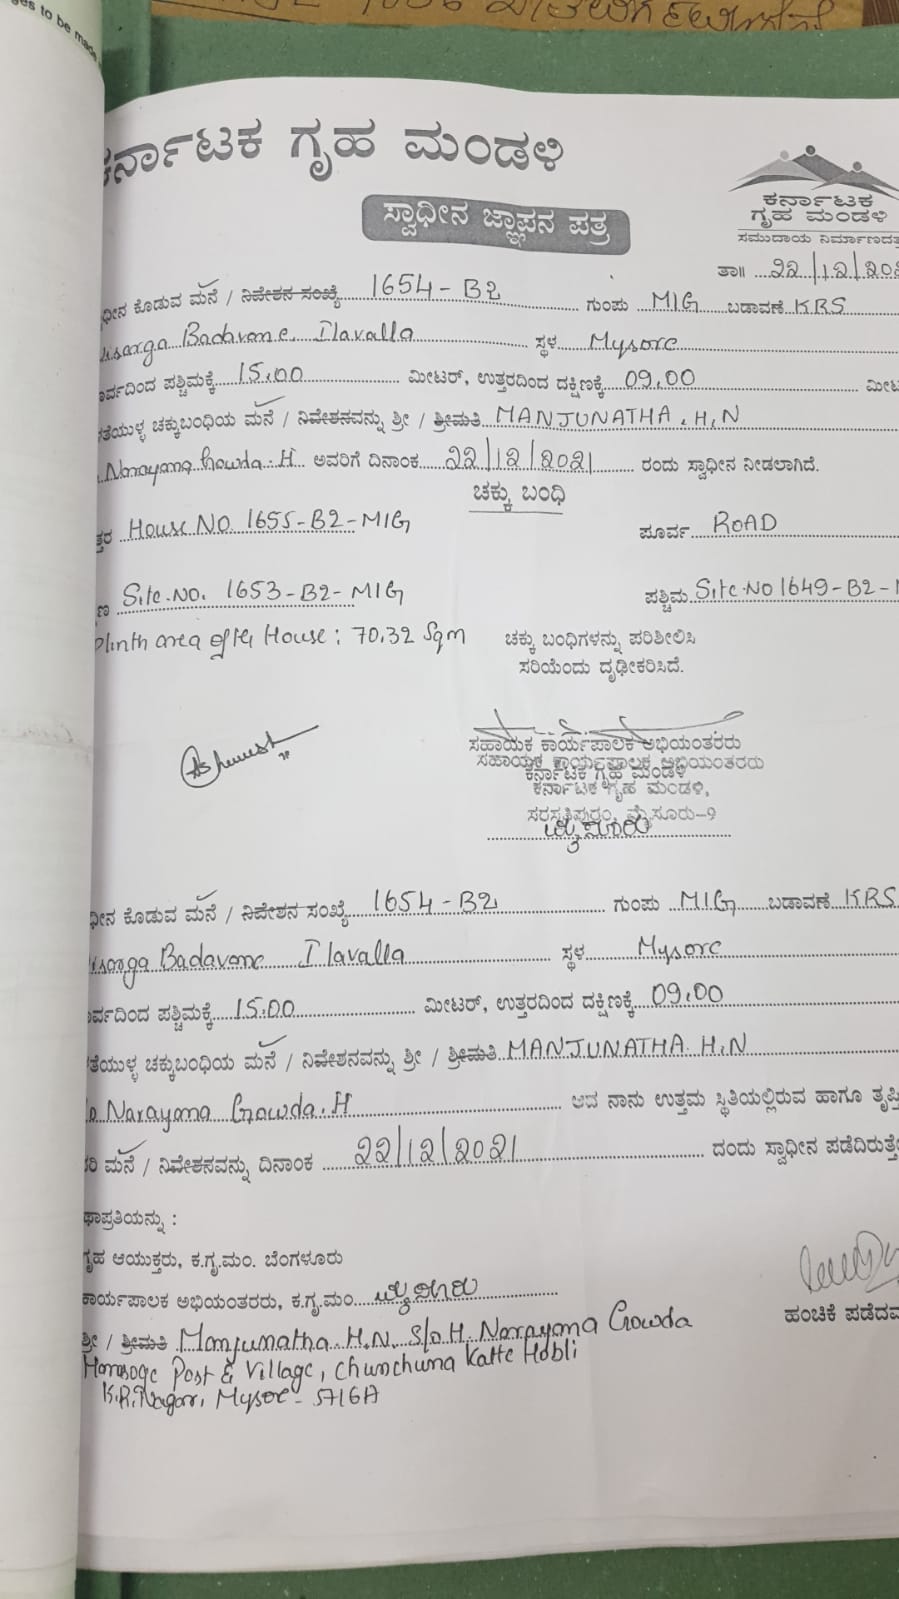 es to be made
ಕರ್ನಾಟಕ ಗೃಹ ಮಂಡಳಿ
ಸ್ವಾಧೀನ ಜ್ಞಾಪನ ಪತ್ರ
ಕರ್ನಾಟಕ
ಗೃಹ ಮಂಡಳಿ
ಸಮುದಾಯ ನಿರ್ಮಾಣದತ್ತ
ತಾ॥ 22/12/202
ಧೀನ ಕೊಡುವ ಮನೆ / ನಿವೇಶನ ಸಂಖ್ಯೆ 1654-B2 ಗುಂಪು MIG ಬಡಾವಣೆ KRS
isarga Badavane, Ilavalla ಸ್ಥಳ Mysore
ರ್ವದಿಂದ ಪಶ್ಚಿಮಕ್ಕೆ 15.00 ಮೀಟರ್, ಉತ್ತರದಿಂದ ದಕ್ಷಿಣಕ್ಕೆ 09.00 ಮೀಟ
ತೆಯುಳ್ಳ ಚಕ್ಕುಬಂಧಿಯ ಮನೆ / ನಿವೇಶನವನ್ನು ಶ್ರೀ / ಶ್ರೀಮತಿ MANJUNATHA.H.N
Narayana Gowda.H ಅವರಿಗೆ ದಿನಾಂಕ 22/12/2021 ರಂದು ಸ್ವಾಧೀನ ನೀಡಲಾಗಿದೆ.
ಚಕ್ಕು ಬಂಧಿ
ತ್ತರ House NO 1655-B2-MIG ಪೂರ್ವ ROAD
ಣ Site.NO. 1653-B2-MIG ಪಶ್ಚಿಮ Site.NO 1649-B2-
Plinth area of the House: 70.32 Sqm ಚಕ್ಕು ಬಂಧಿಗಳನ್ನು ಪರಿಶೀಲಿಸಿ
ಸರಿಯೆಂದು ದೃಢೀಕರಿಸಿದೆ.
ಸಹಾಯಕ ಕಾರ್ಯಪಾಲಕ ಅಭಿಯಂತರರು
ಸಹಾಯಕ ಕಾರ್ಯಪಾಲಕ ಅಭಿಯಂತರರು
ಕರ್ನಾಟಕ ಗೃಹ ಮಂಡಳಿ
ಕರ್ನಾಟಕ ಗೃಹ ಮಂಡಳಿ,
ಸರಸ್ವತಿಪುರಂ, ಮೈಸೂರು-9
ಮೈಸೂರು
ಧೀನ ಕೊಡುವ ಮನೆ / ನಿವೇಶನ ಸಂಖ್ಯೆ 1654-B2 ಗುಂಪು MIG ಬಡಾವಣೆ KRS
isarga Badavane Ilavalla ಸ್ಥಳ Mysore
ರ್ವದಿಂದ ಪಶ್ಚಿಮಕ್ಕೆ 15.00 ಮೀಟರ್, ಉತ್ತರದಿಂದ ದಕ್ಷಿಣಕ್ಕೆ 09.00
ತೆಯುಳ್ಳ ಚಕ್ಕುಬಂಧಿಯ ಮನೆ / ನಿವೇಶನವನ್ನು ಶ್ರೀ / ಶ್ರೀಮತಿ MANJUNATHA.H.N
Narayana Gowda.H ಆದ ನಾನು ಉತ್ತಮ ಸ್ಥಿತಿಯಲ್ಲಿರುವ ಹಾಗೂ ತೃಪ್ತಿ
ರಿ ಮನೆ / ನಿವೇಶನವನ್ನು ದಿನಾಂಕ 22/12/2021 ದಂದು ಸ್ವಾಧೀನ ಪಡೆದಿರುತ್ತೇ
ಥಾಪ್ರತಿಯನ್ನು :
ಗೃಹ ಆಯುಕ್ತರು, ಕ.ಗೃ.ಮಂ. ಬೆಂಗಳೂರು
ಕಾರ್ಯಪಾಲಕ ಅಭಿಯಂತರರು, ಕ.ಗೃ.ಮಂ ಮೈಸೂರು
ಹಂಚಿಕೆ ಪಡೆದವ
ಶ್ರೀ / ಶ್ರೀಮತಿ Manjunatha H.N. S/o H. Narayana Gowda
Post & Village, Chunchuna Katte Hobli
K.R.Nagar, Mysore-